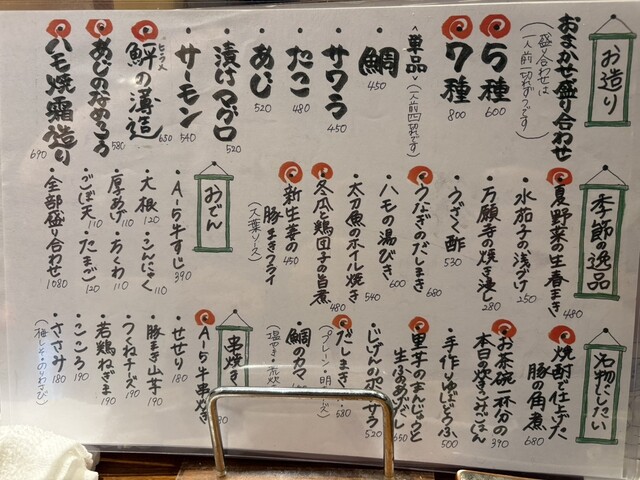 お造り
おまかせ盛り合わせ
(盛り合わせは
一人前一切れずつです)
5種 600
7種 800
<単品>(一人前四切れです)
鯛 450
サワラ 450
たこ 480
あじ 520
漬けマグロ 520
サーモン 540
ヒラメ
鮃の薄造 650
あじのなめろう 580
ハモ焼霜造り 690
季節の逸品
夏野菜の生春まき 480
・水茄子の浅づけ 250
・万願寺の焼き浸し 280
・うざく酢 530
うなぎのだしまき 680
・ハモの湯びき 600
・太刀魚のホイル焼き 540
冬瓜と鶏団子の旨煮 480
新生姜の
豚まきフライ 450
(大葉ソース)
おでん
・A-5牛すじ 390
・大根 120
・こんにゃく 110
・厚あげ 110
・ちくわ 110
・ごぼ天 110
・たまご 120
・全部盛り合わせ 1080
名物にしたい
焼酎で仕上げた
豚の角煮 680
お茶碗一杯分の
本日の炊きこみごはん 390
・手作りゆばどうふ 500
里芋のまんじゅうと
生ふのあげだし 650
じげんのポテサラ 520
だしまき
(プレーン・明
580
鯛のカマ
串焼き
A-5牛串焼き
・せせり 180
・豚まき山芋 190
・つくねチーズ 190
・若鶏ねぎま 190
・こころ 190
・ささみ 180
(梅しそ・のりわさび)